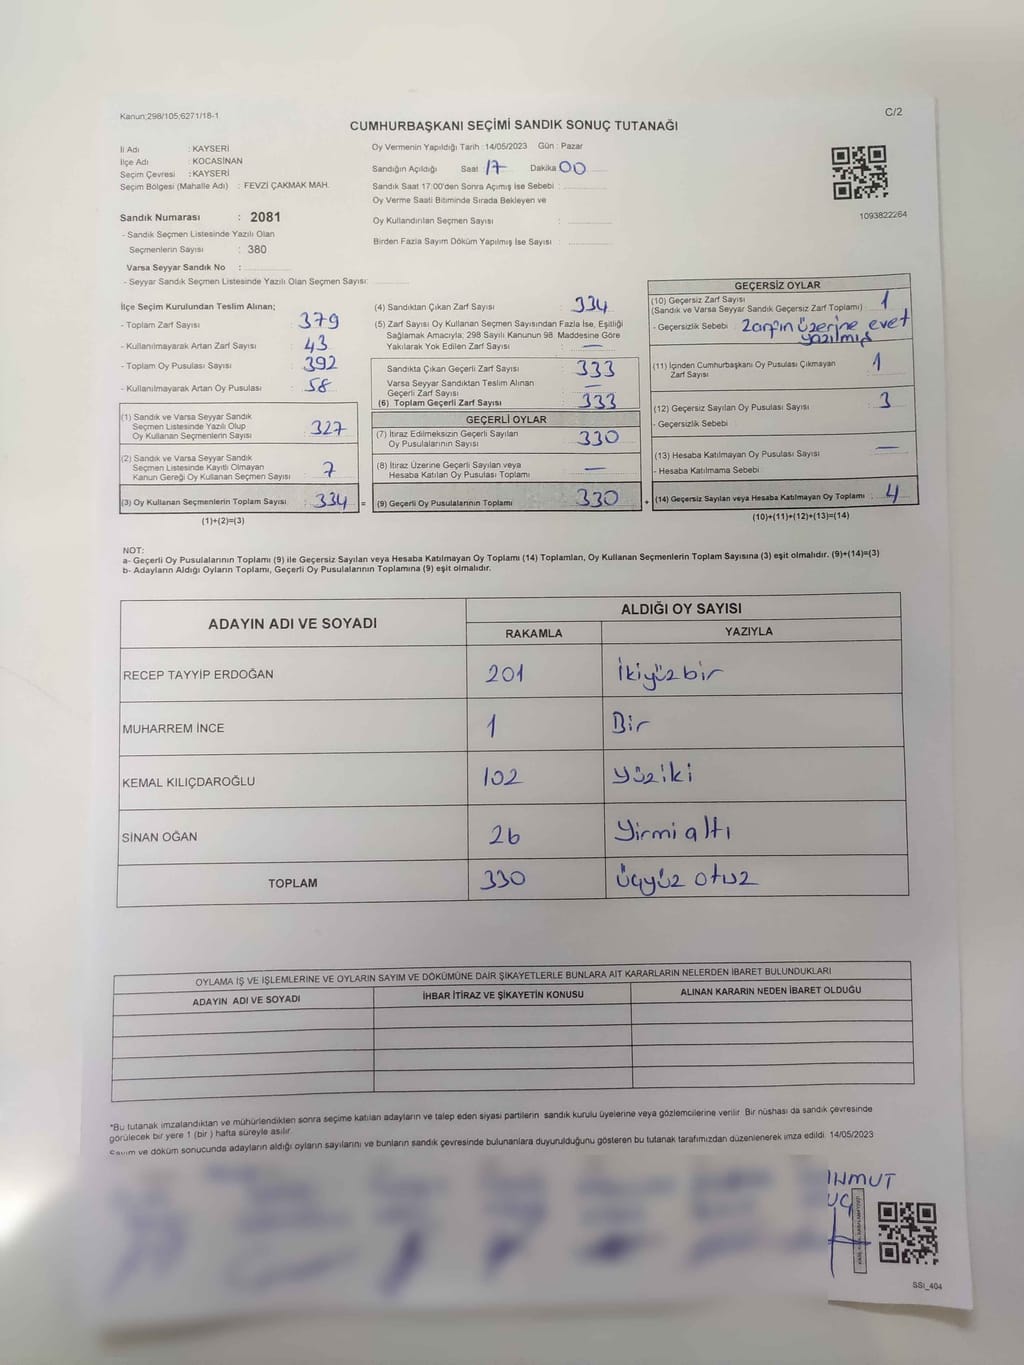 Kanun:298/105;6271/18-1
C/2
CUMHURBAŞKANI SEÇİMİ SANDIK SONUÇ TUTANAĞI
İl Adı : KAYSERİ
İlçe Adı : KOCASİNAN
Seçim Çevresi : KAYSERİ
Seçim Bölgesi (Mahalle Adı) : FEVZİ ÇAKMAK MAH.
Sandık Numarası : 2081
- Sandık Seçmen Listesinde Yazılı Olan
Seçmenlerin Sayısı : 380
Varsa Seyyar Sandık No :
- Seyyar Sandık Seçmen Listesinde Yazılı Olan Seçmen Sayısı:
Oy Vermenin Yapıldığı Tarih : 14/05/2023 Gün : Pazar
Sandığın Açıldığı Saat : 17 Dakika 00
Sandık Saat 17:00'den Sonra Açımış İse Sebebi :
Oy Verme Saati Bitiminde Sırada Bekleyen ve
Oy Kullandırılan Seçmen Sayısı :
Birden Fazla Sayım Döküm Yapılmış İse Sayısı :
1093822264
İlçe Seçim Kurulundan Teslim Alınan;
- Toplam Zarf Sayısı : 379
- Kullanılmayarak Artan Zarf Sayısı : 43
- Toplam Oy Pusulası Sayısı : 392
- Kullanılmayarak Artan Oy Pusulası : 58
(1) Sandık ve Varsa Seyyar Sandık
Seçmen Listesinde Yazılı Olup
Oy Kullanan Seçmenlerin Sayısı : 327
(2) Sandık ve Varsa Seyyar Sandık
Seçmen Listesinde Kayıtlı Olmayan
Kanun Gereği Oy Kullanan Seçmen Sayısı : 7
(3) Oy Kullanan Seçmenlerin Toplam Sayısı : 334 =
(1)+(2)=(3)
(4) Sandıktan Çıkan Zarf Sayısı : 334
(5) Zarf Sayısı Oy Kullanan Seçmen Sayısından Fazla İse, Eşitliği
Sağlamak Amacıyla; 298 Sayılı Kanunun 98. Maddesine Göre
Yakılarak Yok Edilen Zarf Sayısı : —
Sandıkta Çıkan Geçerli Zarf Sayısı : 333
Varsa Seyyar Sandıktan Teslim Alınan
Geçerli Zarf Sayısı : —
(6) Toplam Geçerli Zarf Sayısı : 333
GEÇERLİ OYLAR
(7) İtiraz Edilmeksizin Geçerli Sayılan
Oy Pusulalarının Sayısı : 330
(8) İtiraz Üzerine Geçerli Sayılan veya
Hesaba Katılan Oy Pusulası Toplamı : —
(9) Geçerli Oy Pusulalarının Toplamı : 330 +
GEÇERSİZ OYLAR
(10) Geçersiz Zarf Sayısı : 1
(Sandık ve Varsa Seyyar Sandık Geçersiz Zarf Toplamı)
- Geçersizlik Sebebi : Zarfın üzerine evet
yazılmış
(11) İçinden Cumhurbaşkanı Oy Pusulası Çıkmayan
Zarf Sayısı : 1
(12) Geçersiz Sayılan Oy Pusulası Sayısı : 3
- Geçersizlik Sebebi :
(13) Hesaba Katılmayan Oy Pusulası Sayısı : —
- Hesaba Katılmama Sebebi :
(14) Geçersiz Sayılan veya Hesaba Katılmayan Oy Toplamı : 4
(10)+(11)+(12)+(13)=(14)
NOT:
a- Geçerli Oy Pusulalarının Toplamı (9) ile Geçersiz Sayılan veya Hesaba Katılmayan Oy Toplamı (14) Toplamları, Oy Kullanan Seçmenlerin Toplam Sayısına (3) eşit olmalıdır. (9)+(14)=(3)
b- Adayların Aldığı Oyların Toplamı, Geçerli Oy Pusulalarının Toplamına (9) eşit olmalıdır.
ADAYIN ADI VE SOYADI ALDIĞI OY SAYISI
RAKAMLA YAZIYLA
RECEP TAYYİP ERDOĞAN 201 İkiyüzbir
MUHARREM İNCE 1 Bir
KEMAL KILIÇDAROĞLU 102 yüziki
SİNAN OĞAN 26 Yirmi altı
TOPLAM 330 üçyüz otuz
OYLAMA İŞ VE İŞLEMLERİNE VE OYLARIN SAYIM VE DÖKÜMÜNE DAİR ŞİKAYETLERLE BUNLARA AİT KARARLARIN NELERDEN İBARET BULUNDUKLARI
ADAYIN ADI VE SOYADI İHBAR İTİRAZ VE ŞİKAYETİN KONUSU ALINAN KARARIN NEDEN İBARET OLDUĞU
*Bu tutanak imzalandıktan ve mühürlendikten sonra seçime katılan adayların ve talep eden siyasi partilerin sandık kurulu üyelerine veya gözlemcilerine verilir. Bir nüshası da sandık çevresinde
görülecek bir yere 1 (bir) hafta süreyle asılır.
Sayım ve döküm sonucunda adayların aldığı oyların sayılarını ve bunların sandık çevresinde bulunanlara duyurulduğunu gösteren bu tutanak tarafımızdan düzenlenerek imza edildi. 14/05/2023
SSI_404